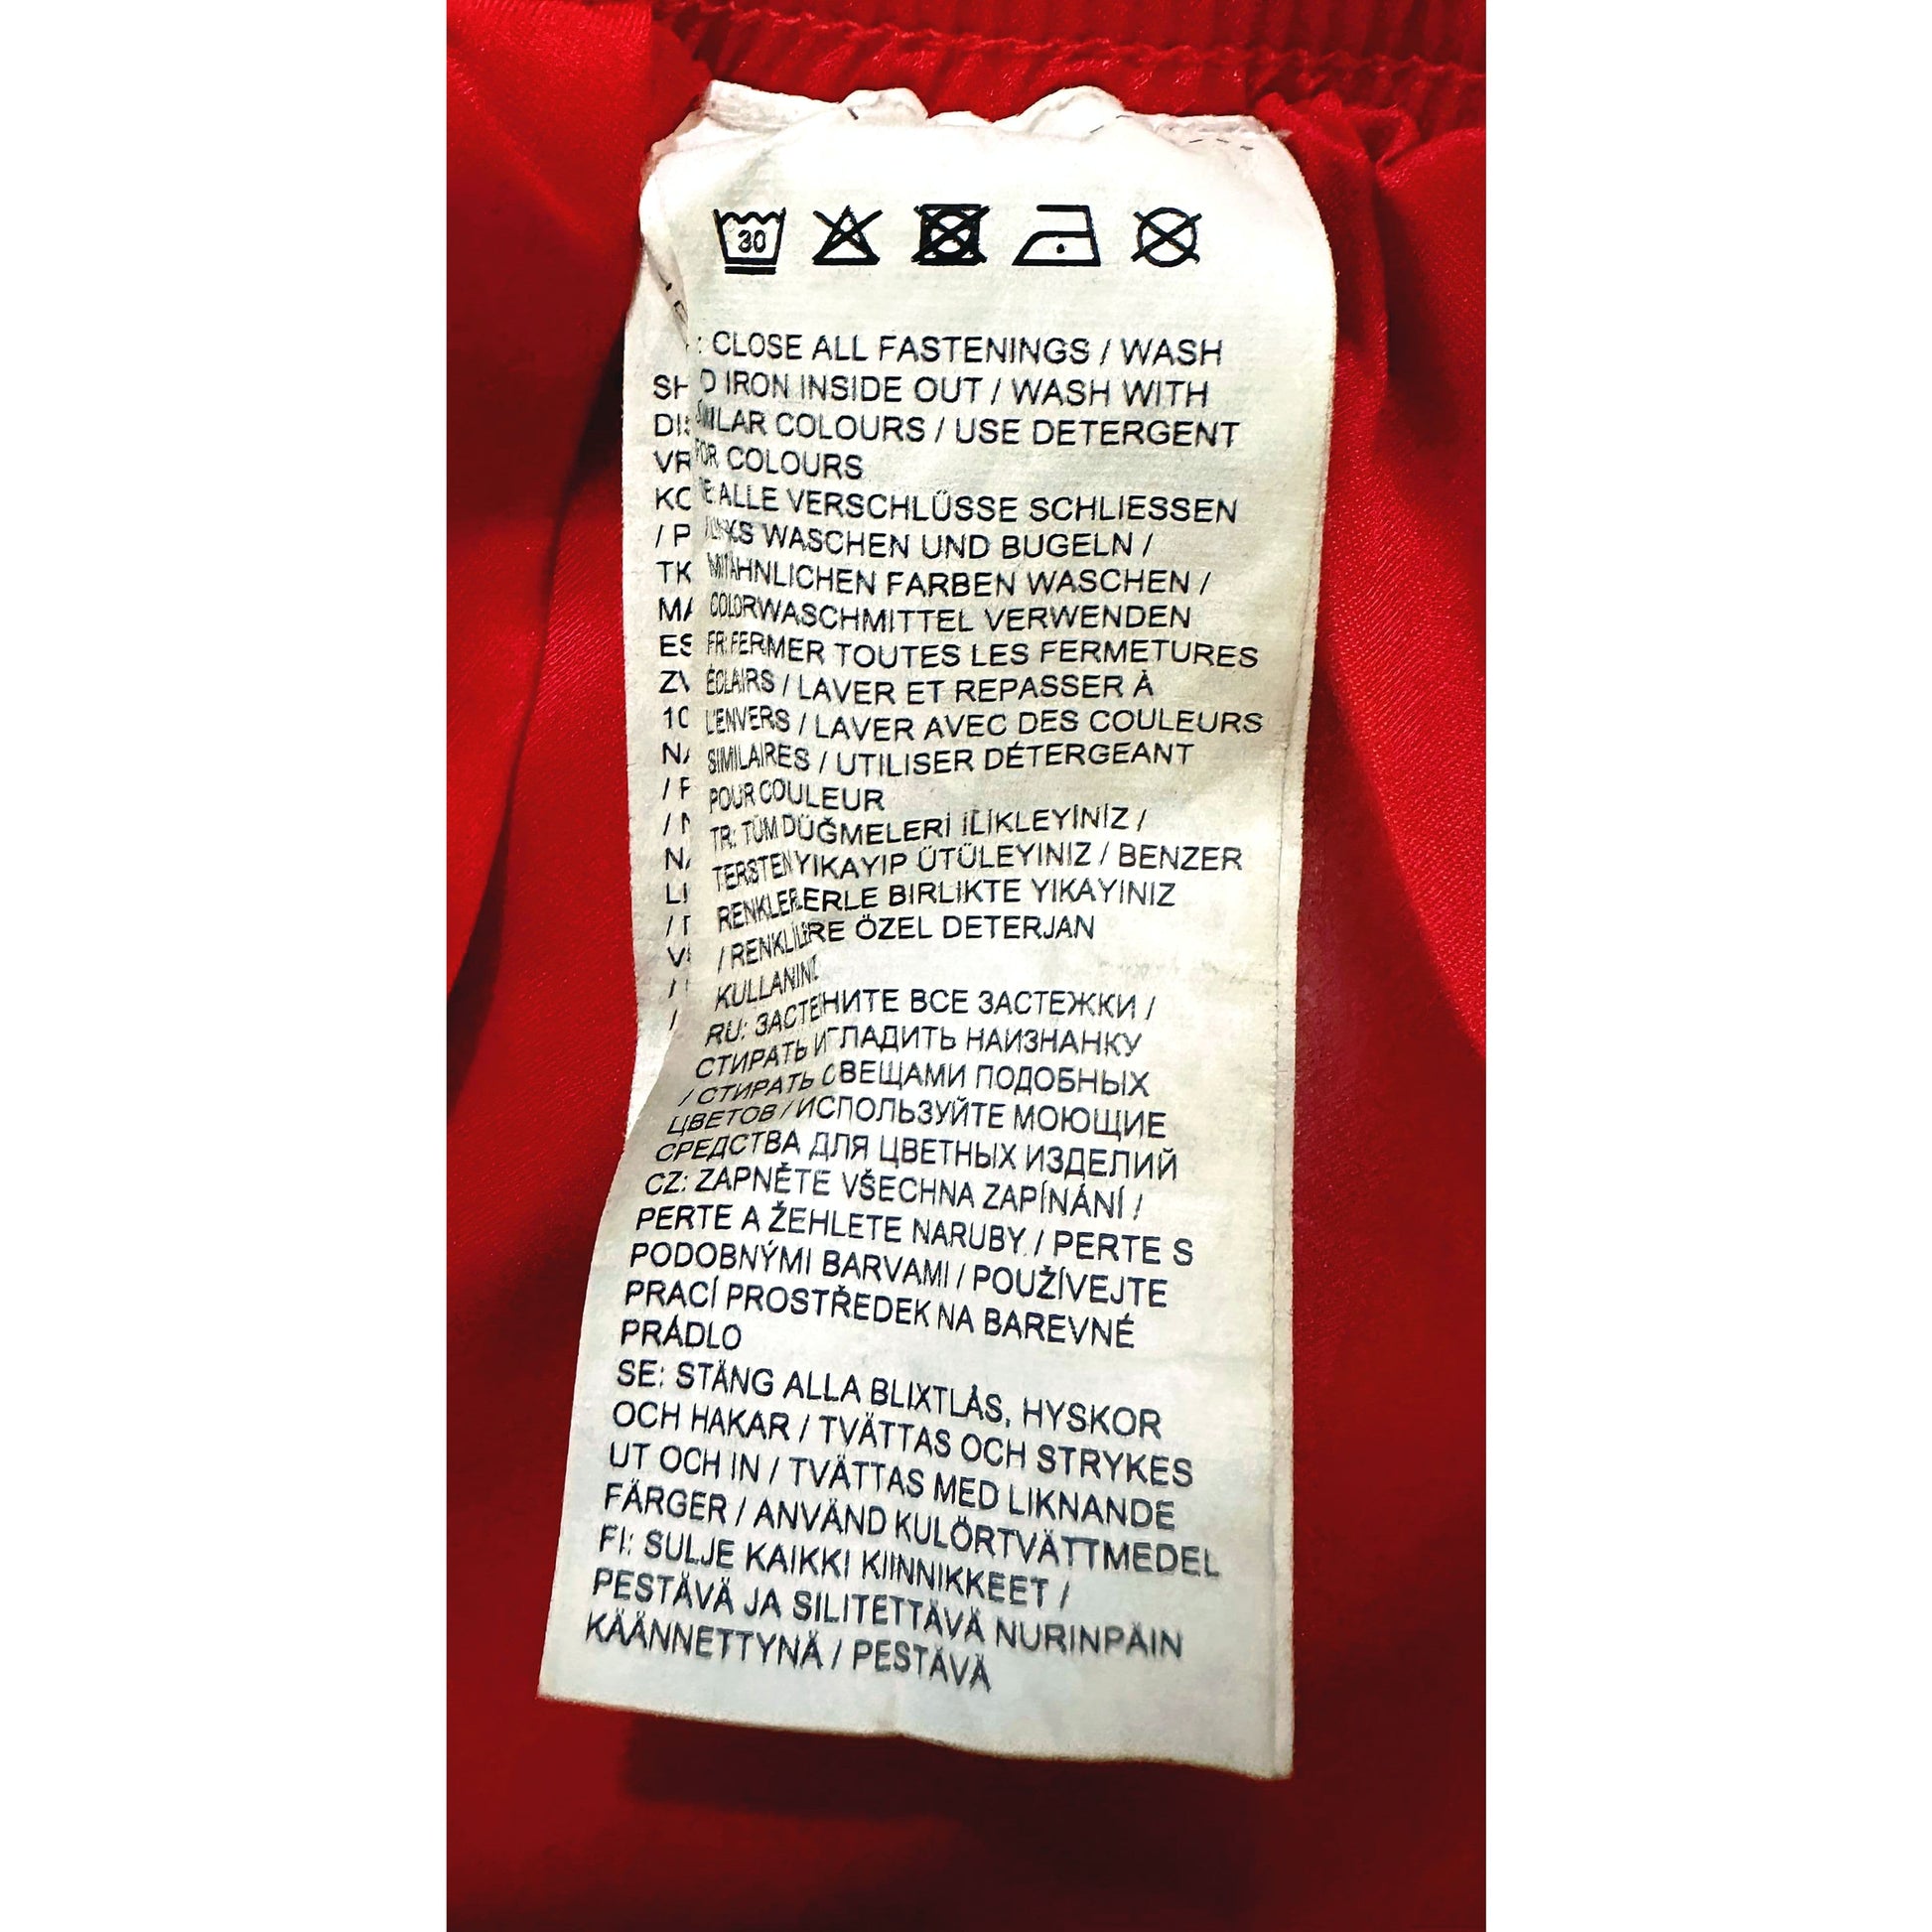 30
: CLOSE ALL FASTENINGS / WASH
D IRON INSIDE OUT / WASH WITH
SIMILAR COLOURS / USE DETERGENT
FOR COLOURS
E: ALLE VERSCHLÜSSE SCHLIESSEN
WASCHEN UND BUGELN /
MIT ÄHNLICHEN FARBEN WASCHEN /
COLORWASCHMITTEL VERWENDEN
FR: FERMER TOUTES LES FERMETURES
ÉCLAIRS / LAVER ET REPASSER À
L'ENVERS / LAVER AVEC DES COULEURS
SIMILAIRES / UTILISER DÉTERGEANT
POUR COULEUR
TR: TÜM DÜĞMELERİ İLİKLEYİNİZ /
TERSTEN YIKAYIP ÜTÜLEYINIZ / BENZER
RENKLERLERLE BIRLIKTE YIKAYINIZ
/ RENKLILERE ÖZEL DETERJAN
KULLANINIZ
RU: ЗАСТЕНИТЕ ВСЕ ЗАСТЕЖКИ /
СТИРАТЬ И ГЛАДИТЬ НАИЗНАНКУ
/ СТИРАТЬ С ВЕЩАМИ ПОДОБНЫХ
ЦВЕТОВ / ИСПОЛЬЗУЙТЕ МОЮЩИЕ
СРЕДСТВА ДЛЯ ЦВЕТНЫХ ИЗДЕЛИЙ
CZ: ZAPNĚTE VŠECHNA ZAPÍNÁNÍ /
PERTE A ŽEHLETE NARUBY / PERTE S
PODOBNÝMI BARVAMI / POUŽÍVEJTE
PRACÍ PROSTŘEDEK NA BAREVNÉ
PRÁDLO
SE: STÄNG ALLA BLIXTLÅS, HYSKOR
OCH HAKAR / TVÄTTAS OCH STRYKES
UT OCH IN / TVÄTTAS MED LIKNANDE
FÄRGER / ANVÄND KULÖRTVÄTTMEDEL
FI: SULJE KAIKKI KIINNIKKEET /
PESTÄVÄ JA SILITETTÄVÄ NURINPÄIN
KÄÄNNETTYNÄ / PESTÄVÄ